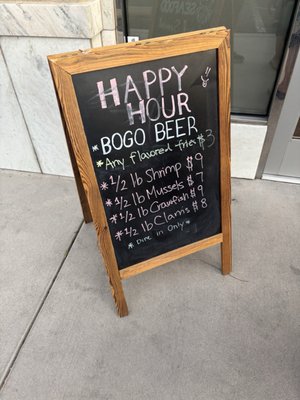 HAPPY
HOUR
* BOGO BEER
* Any flavored fries $3
* 1/2 lb Shrimp $9
* 1/2 lb Mussels $7
* 1/2 lb Crawfish $9
* 1/2 lb Clams $8
* Dine in Only *